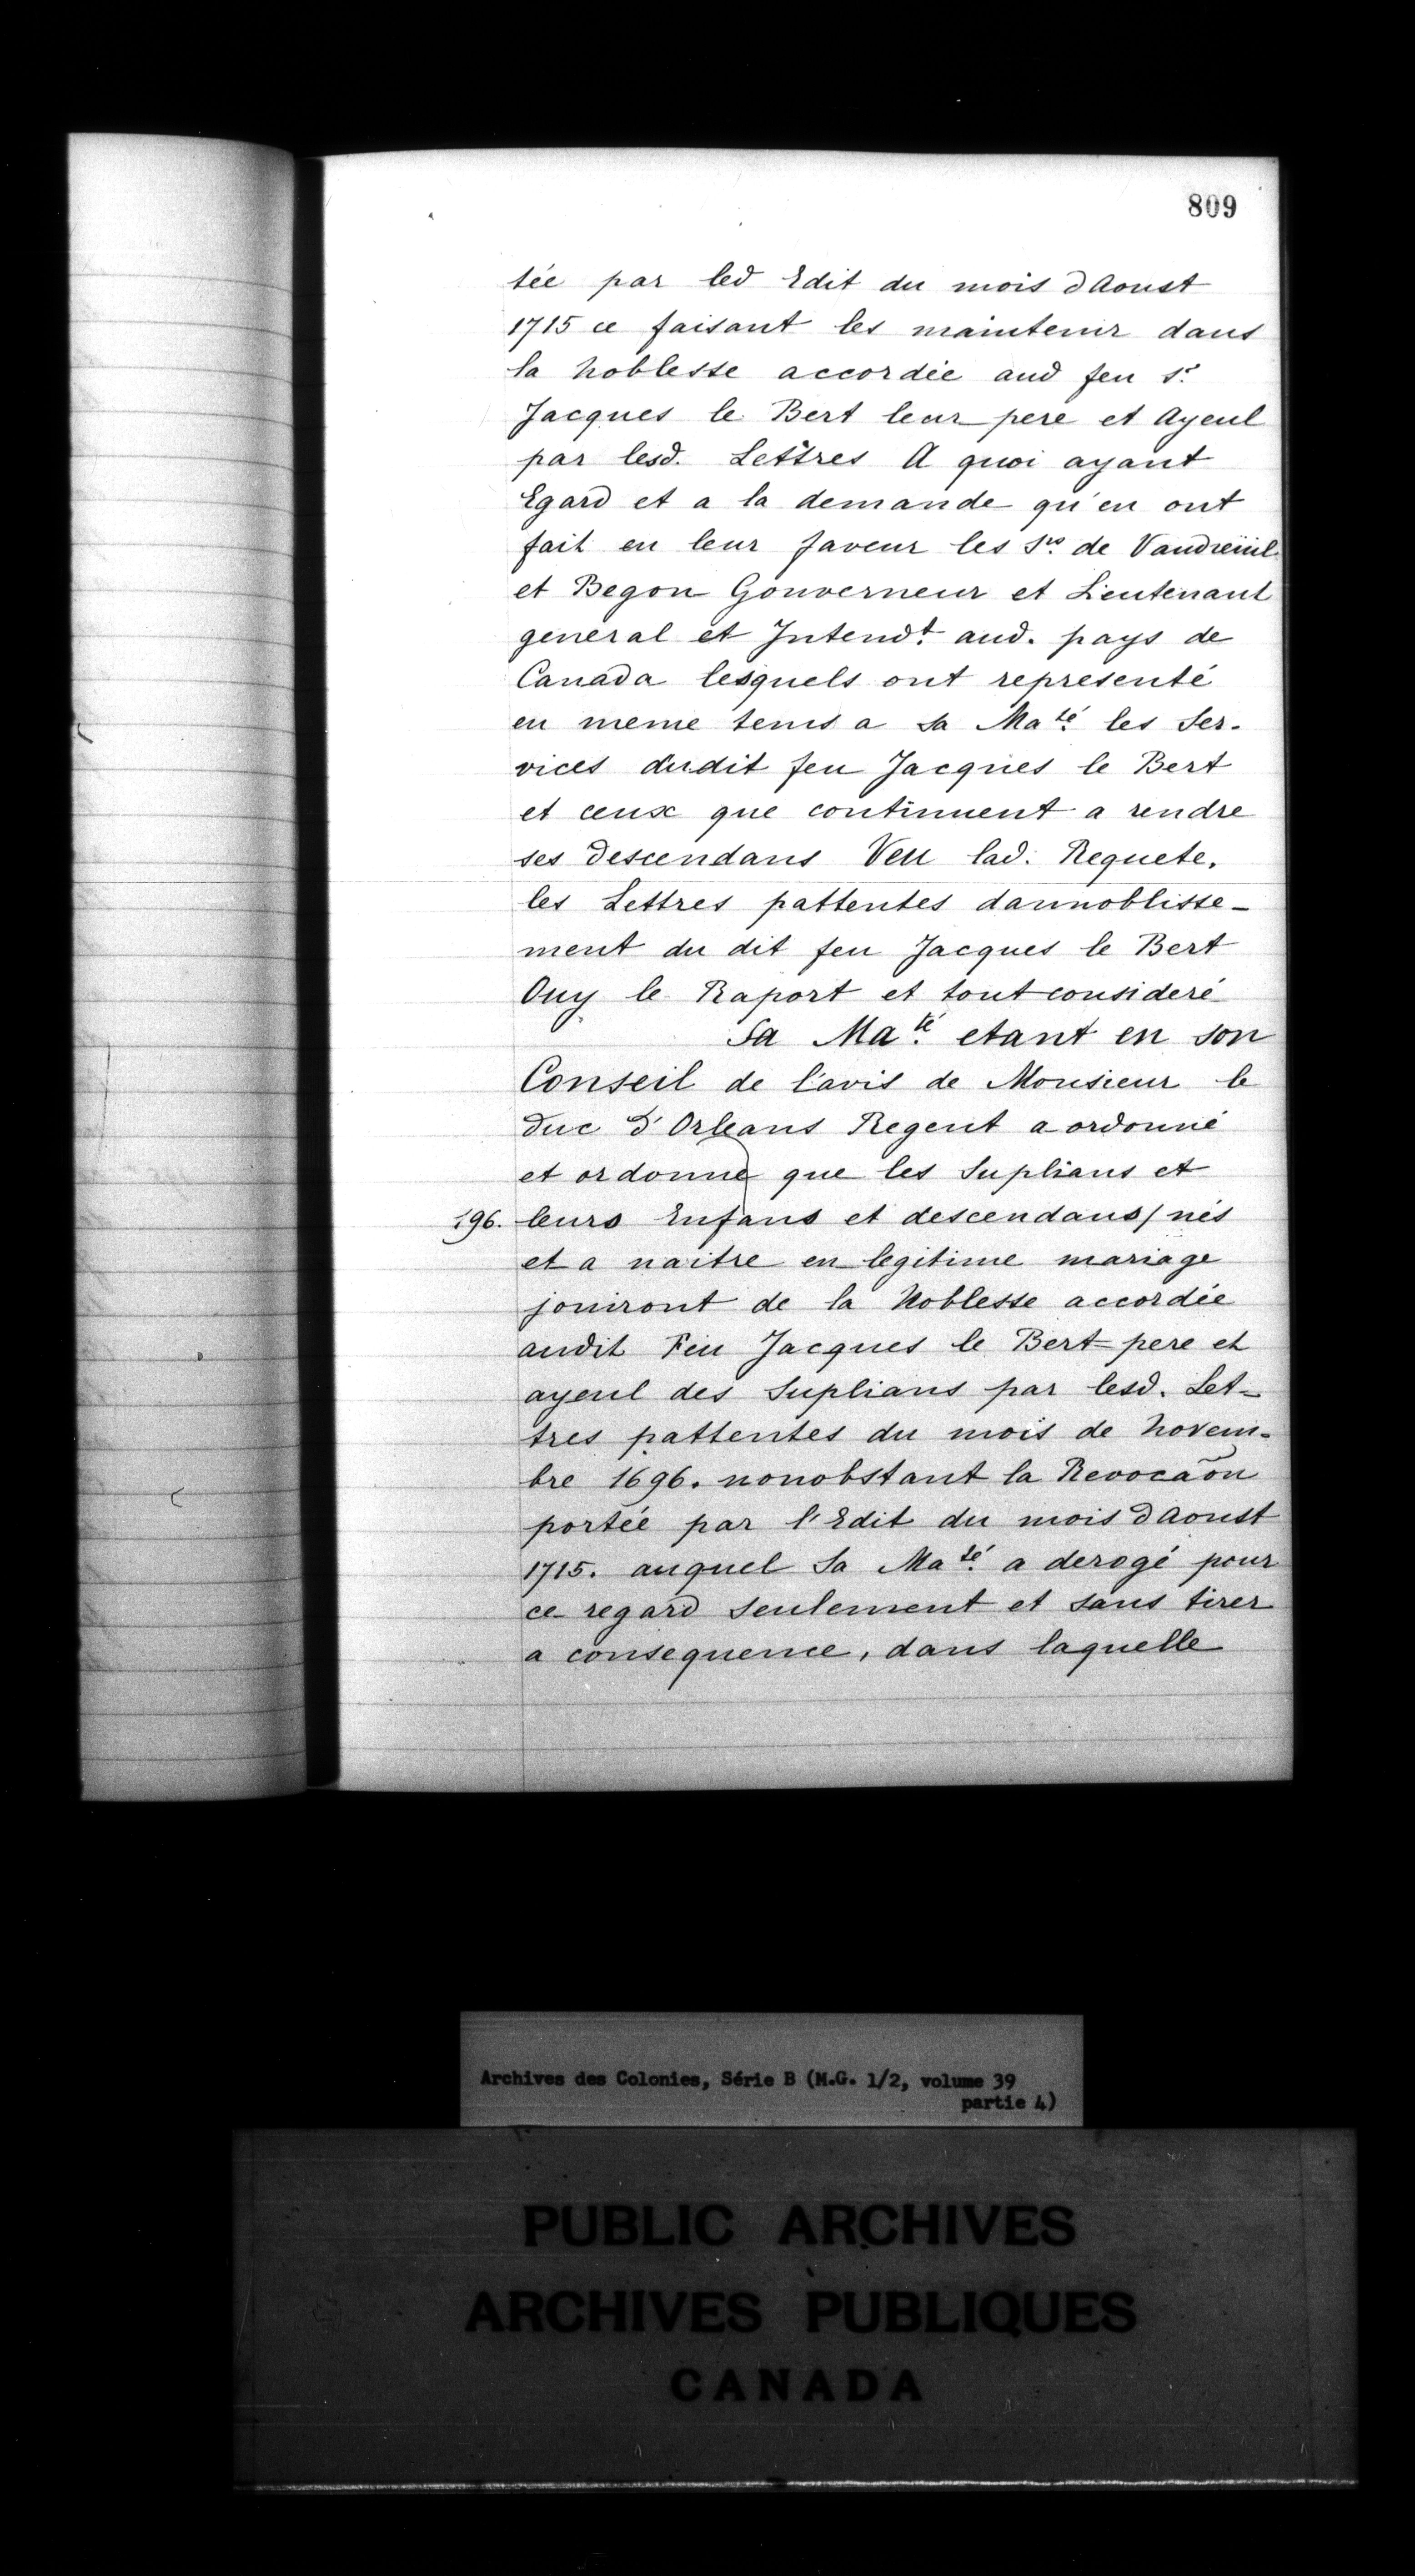 809
tée par led Edit du mois dAoust
1715 ce faisant les maintenir dans
la Noblesse accordée aud feu Sr.
Jacques le Bert leur pere et Ayeul
par lesd. Lettres A quoi ayant
Egard et a la demande qu'en ont
fait en leur faveur les Srs. de Vaudreüil
et Begon Gouverneur et Lieutenant
general et Intendt. aud. pays de
Canada lesquels ont representé
en meme tems a sa Maté. les Ser-
vices dudit feu Jacques le Bert
et ceux que continuent a rendre
ses descendans Veu lad. Requete,
les Lettres pattentes dannoblisse-
ment du dit feu Jacques le Bert
Ouy le Raport et tout consideré
Sa Maté. etant en son
Conseil de l'avis de Monsieur le
Duc d'Orleans Regent a ordonné
et ordonne que les Suplians et
196. leurs Enfans et descendans/nés
et a naitre en legitime mariage
jouiront de la Noblesse accordée
audit Feu Jacques le Bert pere et
ayeul des Suplians par lesd. Let-
tres pattentes du mois de Novem-
bre 1696. nonobstant la Revocãon
portée par l'Edit du mois dAoust
1715. auquel Sa Maté. a derogé pour
ce regard seulement et sans tirer
a consequence, dans laquelle
Archives des Colonies, Série B (M.G. 1/2, volume 39
partie 4)
PUBLIC ARCHIVES
ARCHIVES PUBLIQUES
CANADA